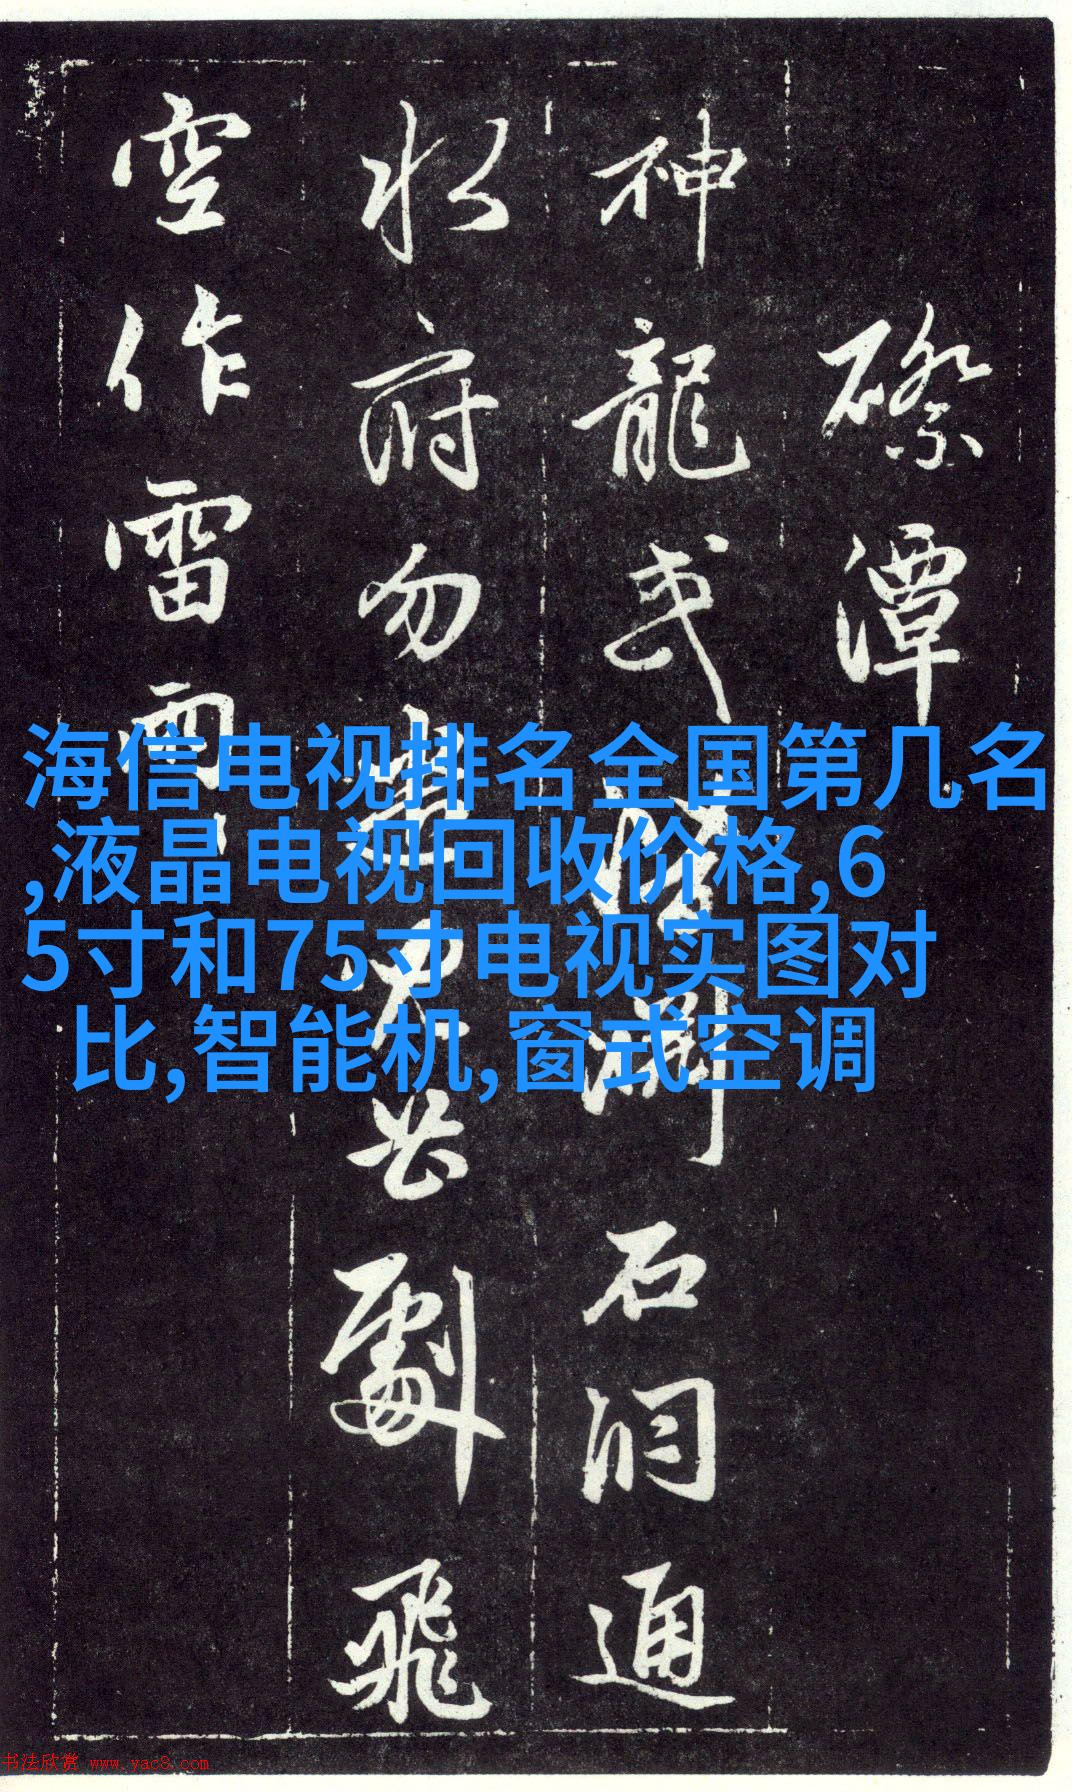 潭
神龍或潛淵石洞通
水府勿劇飛
空作雷雨
海信电视排名全国第几名
,液晶电视回收价格,6
5寸和75寸电视实图对
比,智能机,窗式空调
书法欣赏 www.yac8.com